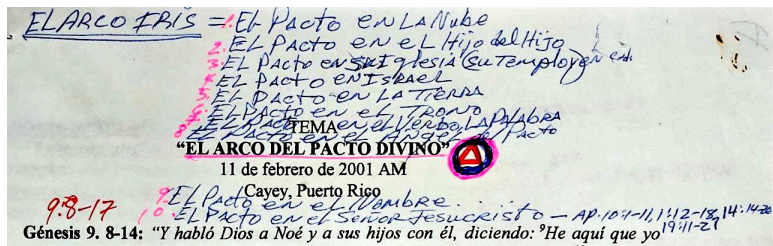 EL ARCO IRIS = 1. EL PACTO EN LA Nube
2. EL PACTO EN EL Hijo del Hijo
3. EL PACTO EN SU Iglesia (su Templo) en
EL PACTO EN ISRAEL
EL PACTO EN LA TIERRA
EL PACTO EN EL TRONO
EL PACTO EN EL Verbo LA PALABRA
8 EL PACTO EN EL del Pacto
TEMA
“EL ARCO DEL PACTO DIVINO”
11 de febrero de 2001 AM
Cayey, Puerto Rico
9. EL PACTO en el Nombre...
10. EL PACTO en el SEÑOR JESUCRISTO – AP. 10:1-11, 1:12-18, 14:14-20
19:11-21
9:8-17
Génesis 9. 8-14: “Y habló Dios a Noé y a sus hijos con él, diciendo: ⁹He aquí que yo